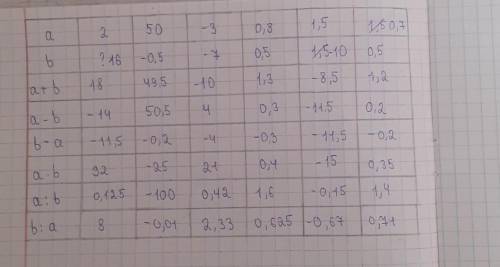 a 2 50 -3 0,8 1,5 0,7
b ?16 -0,5 -7 0,5 -10 0,5
a+b 18 49,5 -10 1,3 -8,5 1,2
a-b -14 50,5 4 0,3 -11.5 0,2
b-a -11,5 -0,2 -4 -0,3 -11,5 -0,2
a·b 32 -25 21 0,4 -15 0,35
a:b 0,125 -100 0,42 1,6 -0,15 1,4
b:a 8 -0,01 2,33 0,625 -0,67 0,71